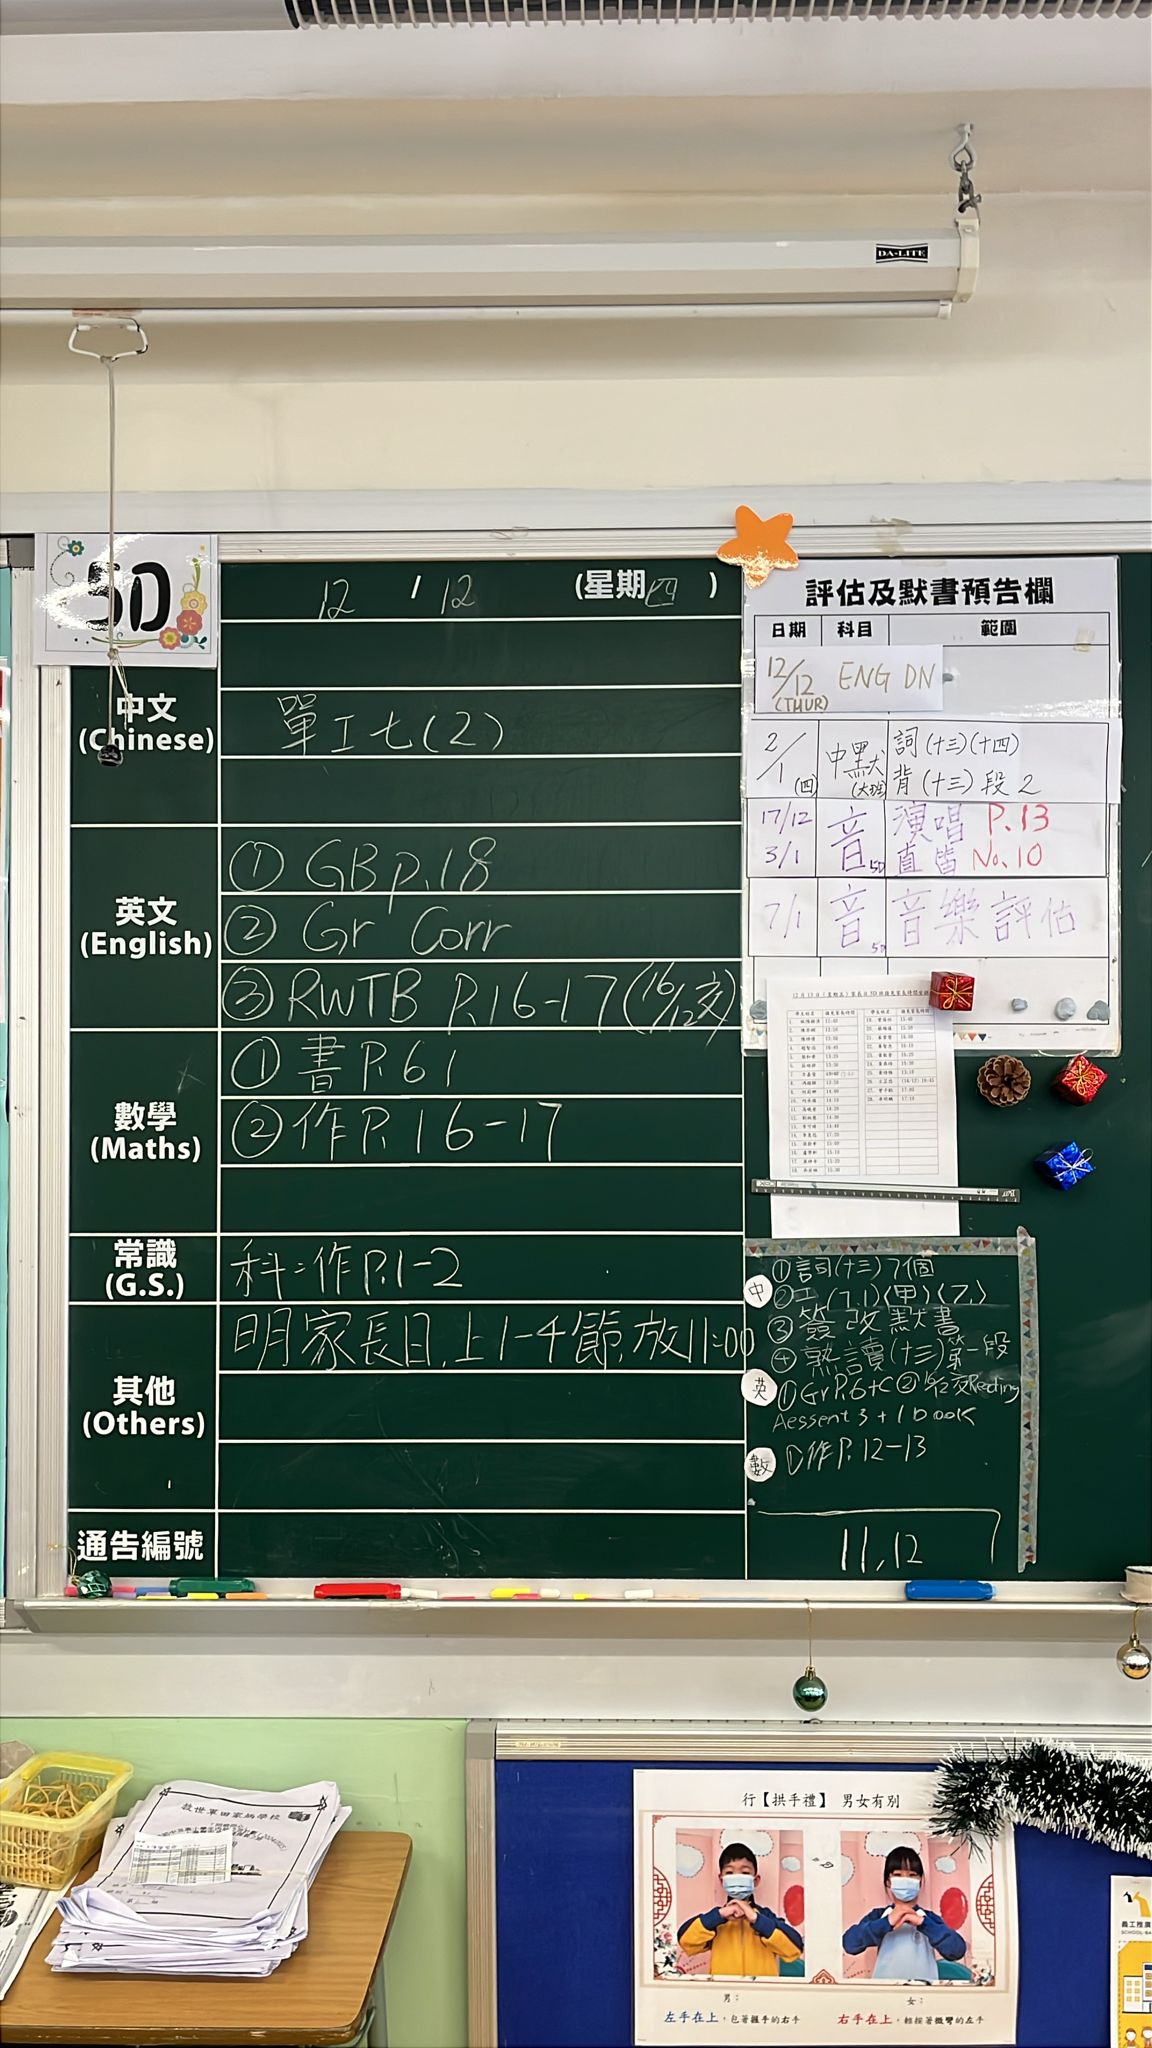 DA-LITE
5D
12 / 12 (星期四)
中文
(Chinese)
單工七(2)
英文
(English)
① GB p.18
② Gr Corr
③ RWTB P.16-17 (16/12交)
數學
(Maths)
① 書 P.61
② 作 P.16-17
常識
(G.S.)
科:作P.1-2
其他
(Others)
明家長日,上1-4節,放11:00
通告編號
評估及默書預告欄
日期 科目 範圍
12/12 (THUR) ENG DN
2/1 (四) 中默 (大班) 詞(十三)(十四)
背(十三)段2
17/12 音 5D 演唱 P.13
3/1 直笛 No.10
7/1 音 5D 音樂評估
中
①詞(十三)7個
②工(7.1)(甲)(乙)
③簽改默書
④熟讀(十三)第一段
英
①Gr P.6+C ②16/12交Reading
Aessent 3 + 1 book
數
①作P.12-13
11,12
救世軍田家炳學校
行【拱手禮】 男女有別
男:
左手在上,包著握手的右手
女:
右手在上,輕按著微彎的左手
義工推廣